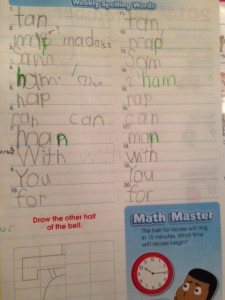 Weekly Spelling Words
tan tan
map mad map
Sam Sam
ham ham
nap nap
ran can can
man man
with with
You You
for for
Draw the other half
of the bell.
Math Master
The bell for recess will ring
in 15 minutes. What time
will recess begin?